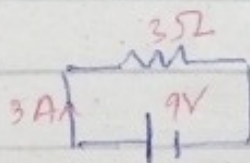 3Ω
3A 9V